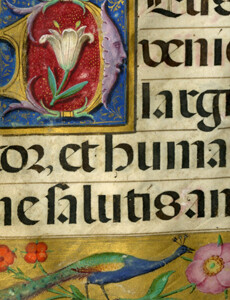 Deus
venie
largi
tor, et huma
ne salutis am